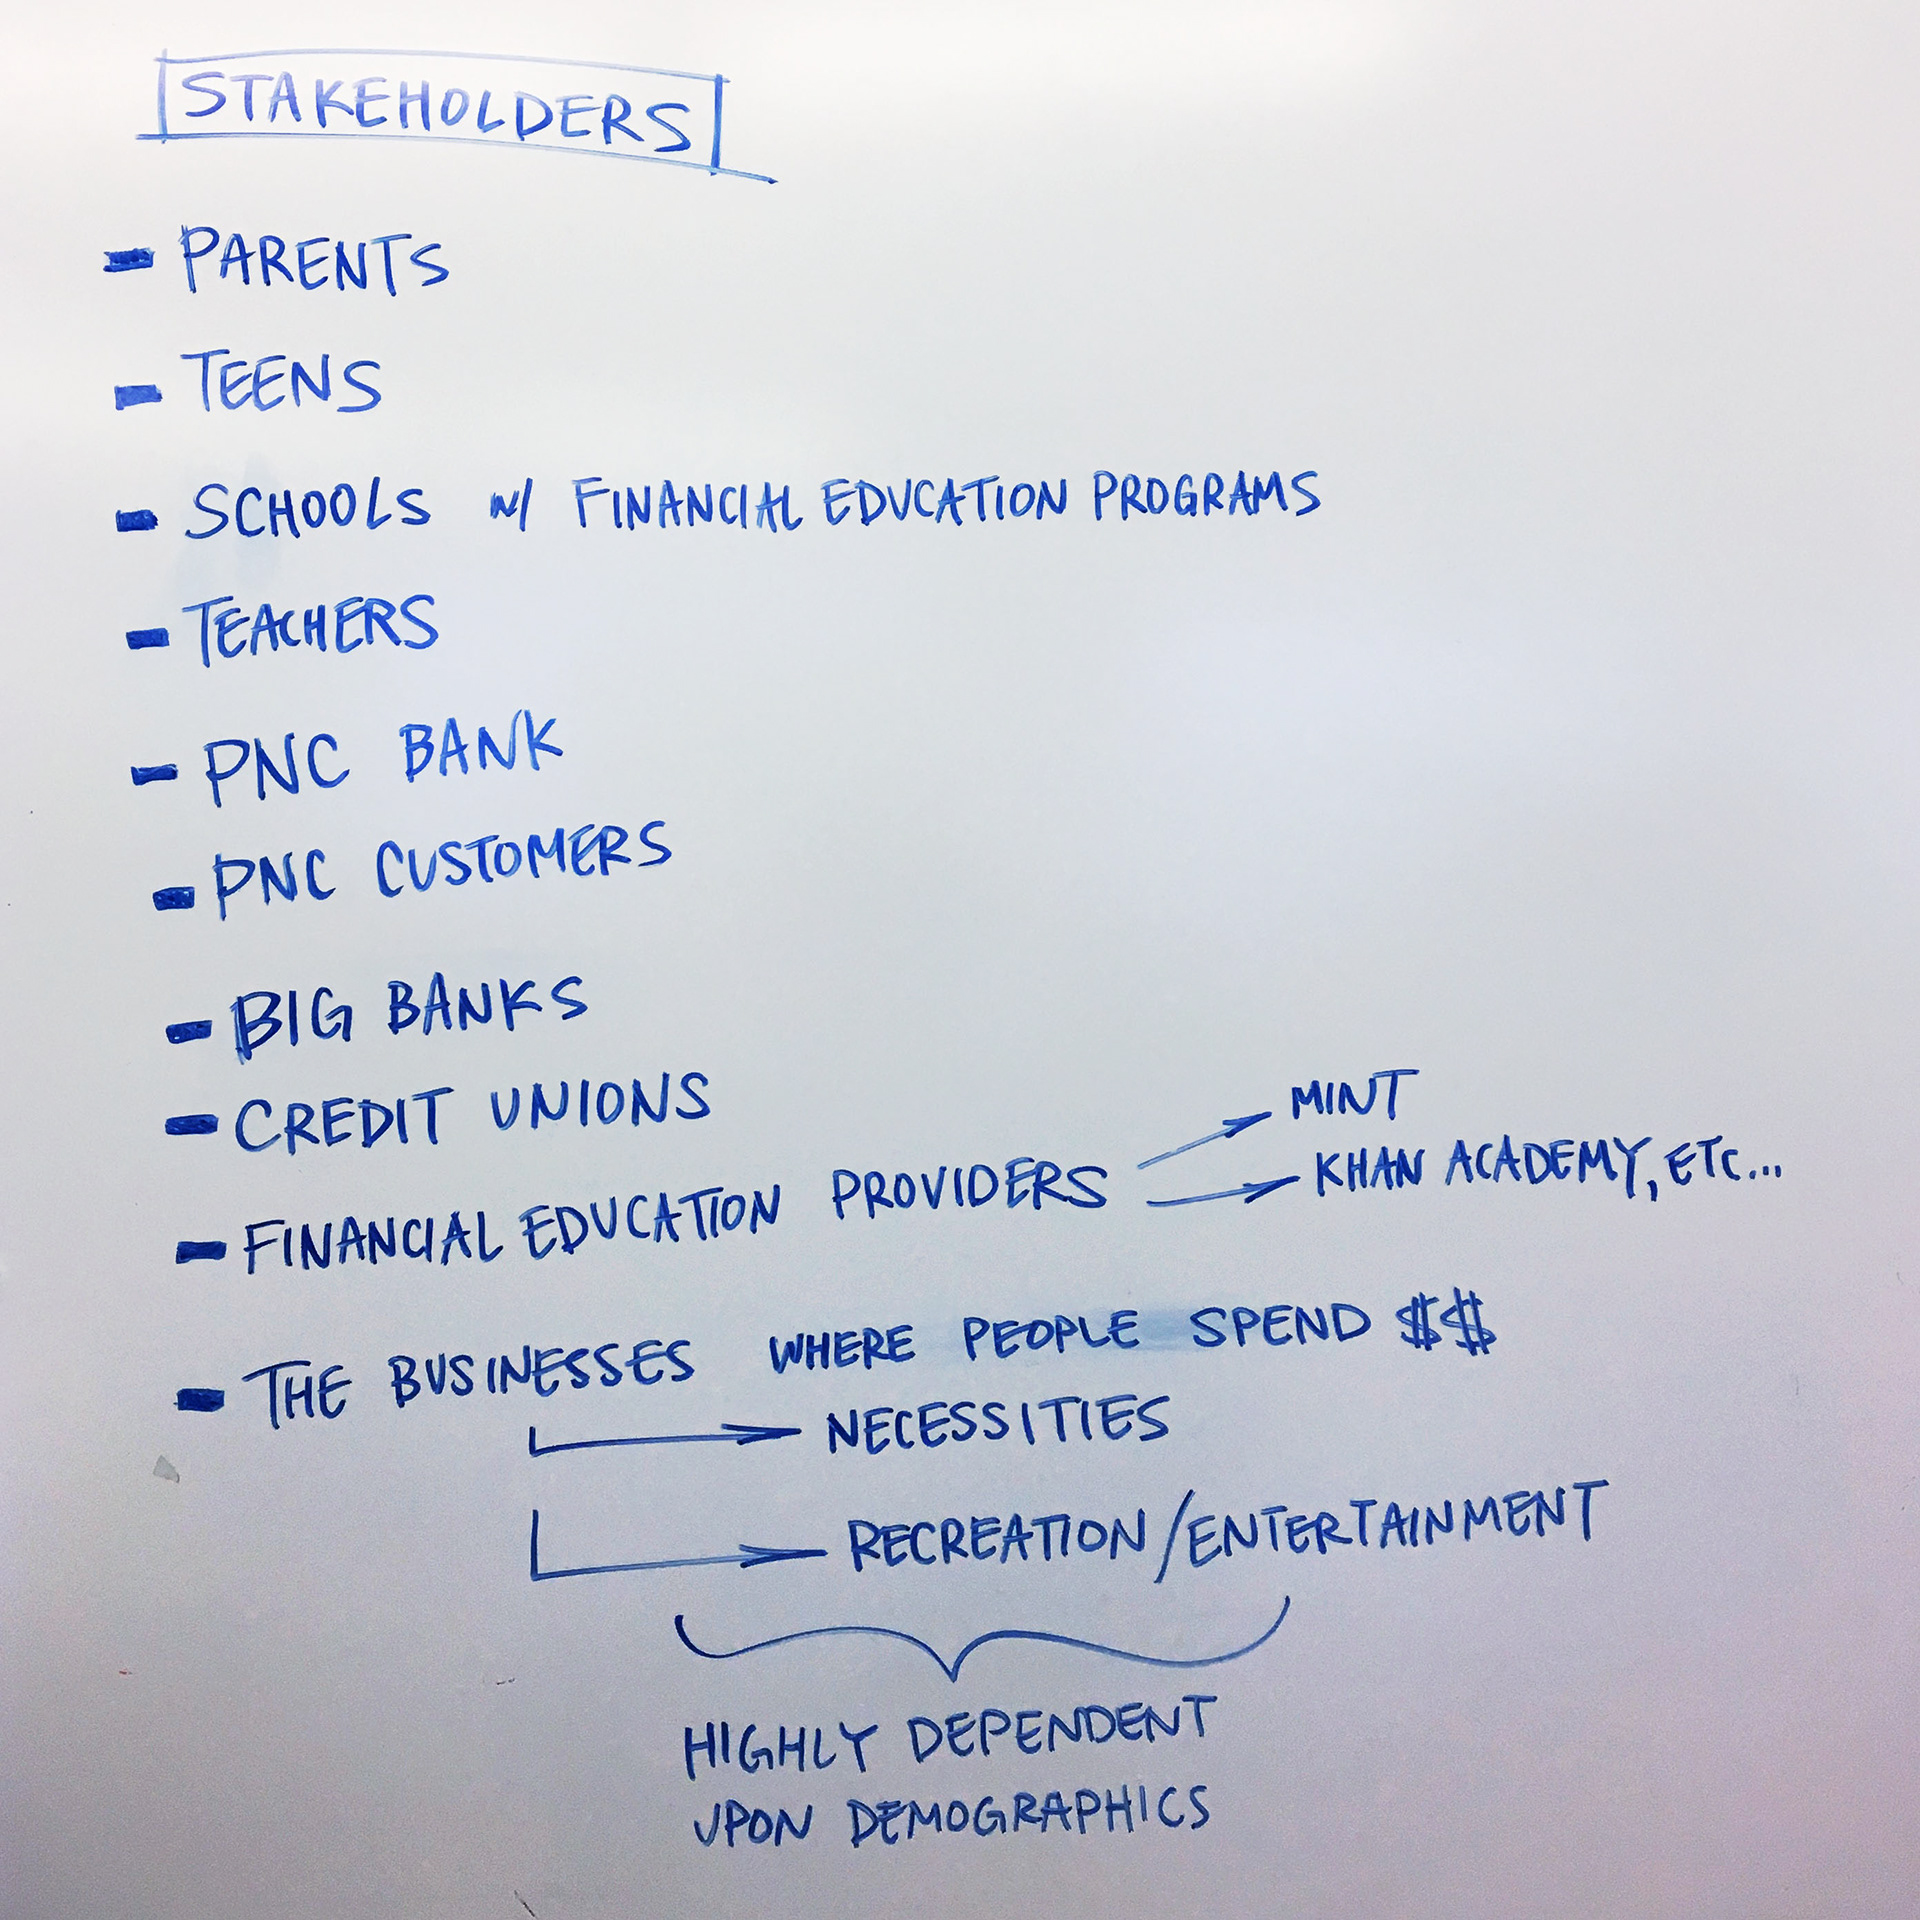 STAKEHOLDERS
- PARENTS
- TEENS
- SCHOOLS w/ FINANCIAL EDUCATION PROGRAMS
- TEACHERS
- PNC BANK
- PNC CUSTOMERS
- BIG BANKS
- CREDIT UNIONS
- FINANCIAL EDUCATION PROVIDERS
→ MINT
→ KHAN ACADEMY, ETC...
- THE BUSINESSES WHERE PEOPLE SPEND $$
→ NECESSITIES
→ RECREATION/ENTERTAINMENT
HIGHLY DEPENDENT
UPON DEMOGRAPHICS